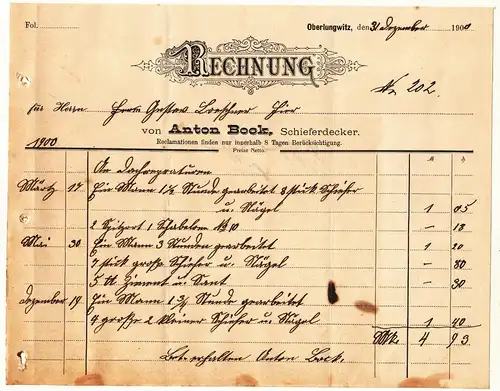 Fol.
Oberlungwitz, den 31 Dezember 1900
RECHNUNG
No 202.
für Herrn Herrn Gustav Loeschner Hier
von Anton Bock, Schieferdecker.
Reclamationen finden nur innerhalb 8 Tagen Berücksichtigung.
1900 Preise Netto.
An Dachreparaturen
Märtz 17 Ein Mann 1½ Stunde gearbeitet 8 stück Schiefer
u. Nägel 1 05
2 1 No 10 – 18
Mai 30 Ein Mann 3 Stunden gearbeitet 1 20
stück große Schiefer u. Nägel – 80
5 Ziment u. Sant – 30
Dezember 19 Ein Mann 1¾ Stunde gearbeitet
4 große 2 kleiner Schiefer u. Nägel 1 40
Mk. 4 93
Bet. erhalten Anton Bock.